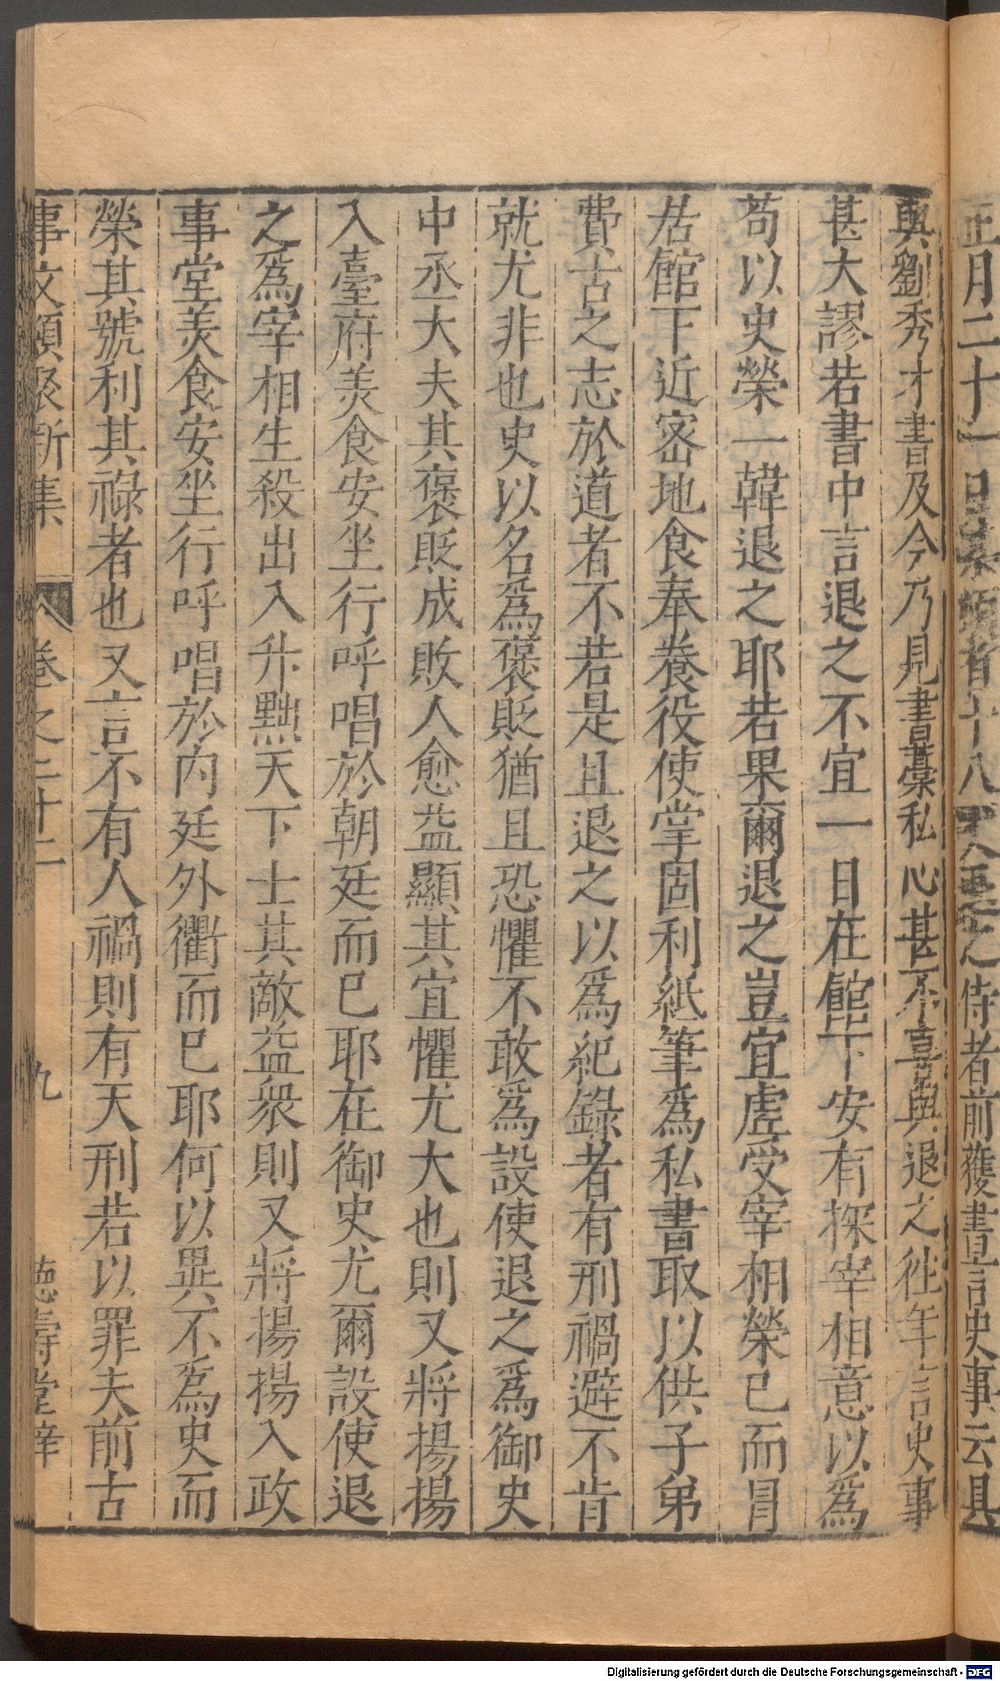 正月二十一日某頓首十八丈退之侍者前獲書言史事云具
與劉秀才書及今乃見書藁私心甚不喜與退之徃年言史事
甚大謬若書中言退之不宜一日在館下安有探宰相意以為
苟以史榮一韓退之耶若果爾退之豈宜虗受宰相榮已而冒
居館下近宻地食奉養役使掌固利紙筆為私書取以供子弟
費古之志於道者不若是且退之以為紀錄者有刑禍避不肯
就尤非也史以名為褒貶猶且恐懼不敢為設使退之為御史
中丞大夫其褒貶成敗人愈益顯其宜懼尤大也則又將揚揚
入臺府美食安坐行呼唱於朝廷而已耶在御史尤爾設使退
之為宰相生殺出入升黜天下士其敵益衆則又將揚揚入政
事堂美食安坐行呼唱於内廷外衢而已耶何以異不為史而
榮其號利其祿者也又言不有人禍則有天刑若以罪夫前古
事文類聚新集 卷之二十二 九 德壽堂梓
Digitalisierung gefördert durch die Deutsche Forschungsgemeinschaft - DFG